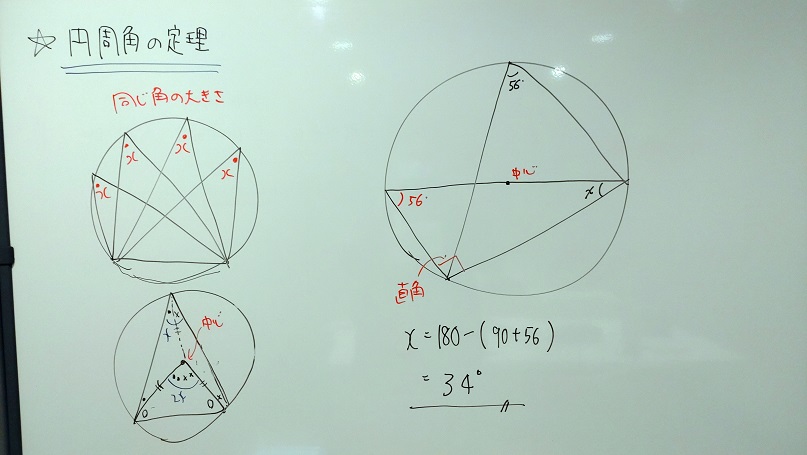 ☆ 円周角の定理
同じ角の大きさ
x
x
x
x
中心
2x
56°
中心
56°
x
直角
x = 180 - (90 + 56)
= 34°